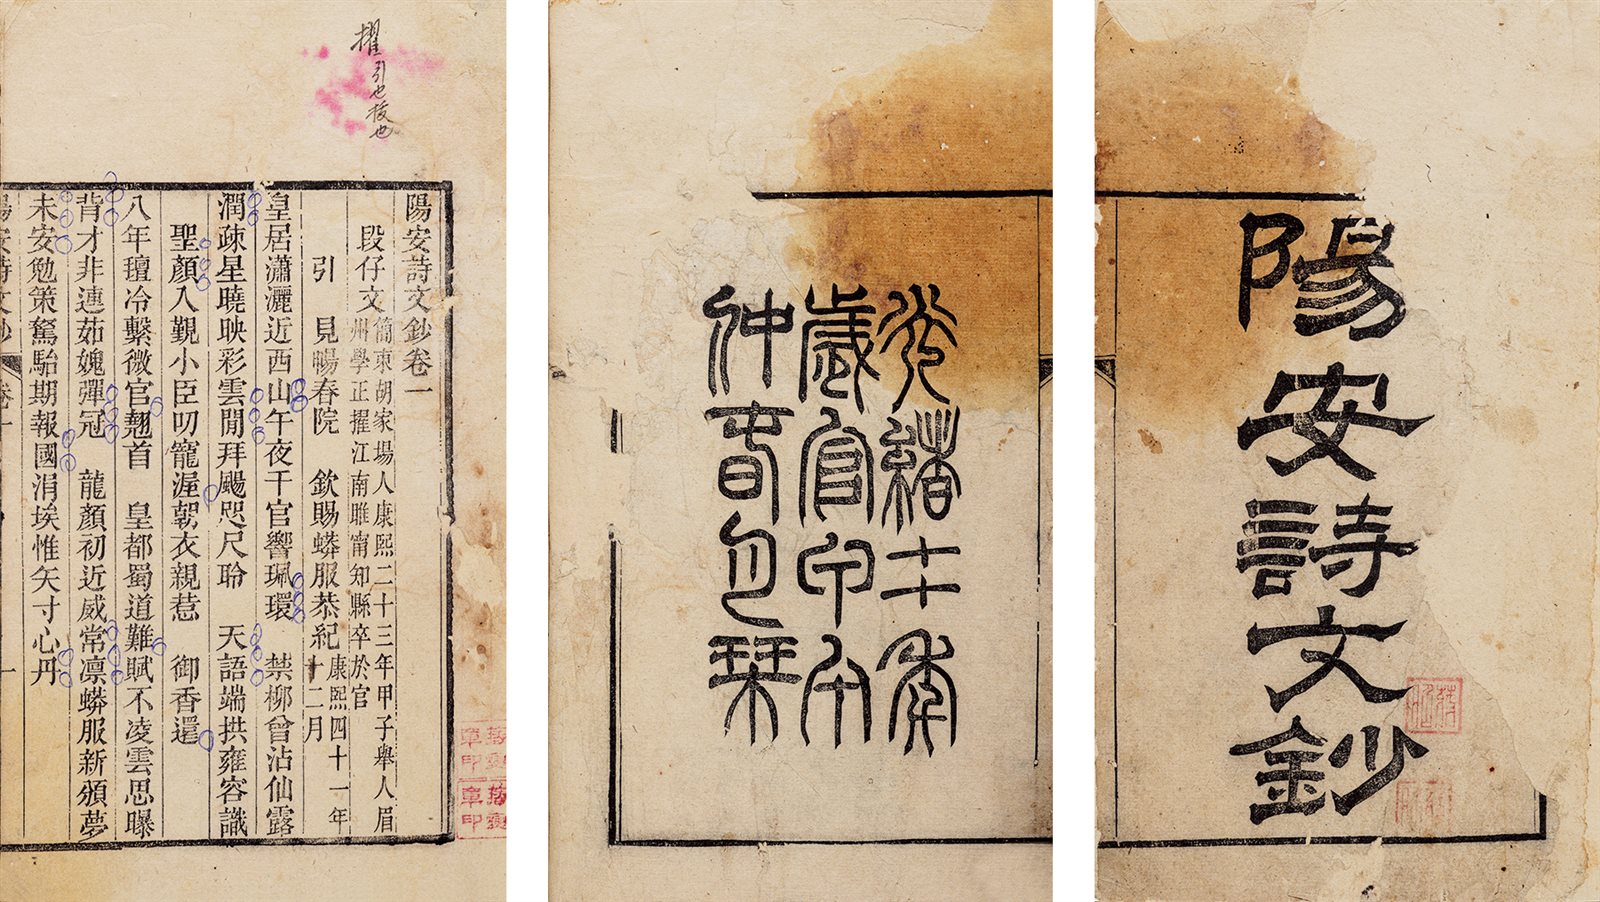 陽安詩文鈔
光緒二十年
歲官甲午
仲春月栞
擢引也拔也
陽安詩文鈔卷一
段仔文 簡東胡家場人康熙二十三年甲子舉人眉
州學正擢江南睢甯知縣卒於官
引 見暢春院 欽賜蟒服恭紀 康熙四十一年
十二月
皇居瀟灑近西山午夜千官響珮環 禁柳曾沾仙露
潤疎星曉映彩雲閒拜颺咫尺聆 天語端拱雍容識
聖顏入覲小臣叨寵渥朝衣親惹 御香還
八年氊冷繫微官翹首 皇都蜀道難賦不凌雲思曝
背才非連茹媿彈冠 龍顏初近威常凛蟒服新頒夢
未安勉策駑駘期報國涓埃惟矢寸心丹
陽安詩文鈔 卷一 一